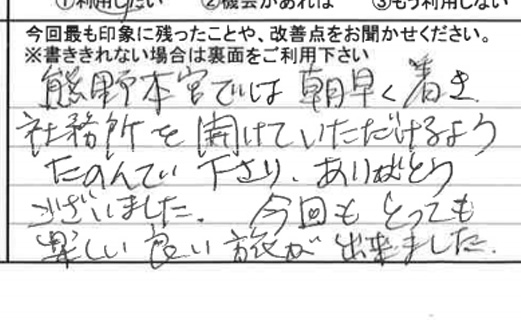 ①利用したい ②機会があれば ③もう利用しない
今回最も印象に残ったことや、改善点をお聞かせください。
※書ききれない場合は裏面をご利用下さい
熊野本宮では朝早く着き
社務所を開けていただけるよう
たのんでい下さり、ありがとう
ございました。今回もとっても
楽しい良い旅が出来ました。